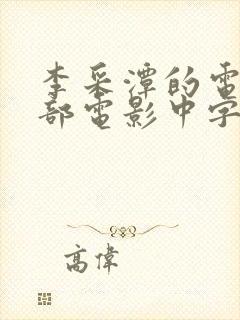 李采潭的電
部電影中字
高偉